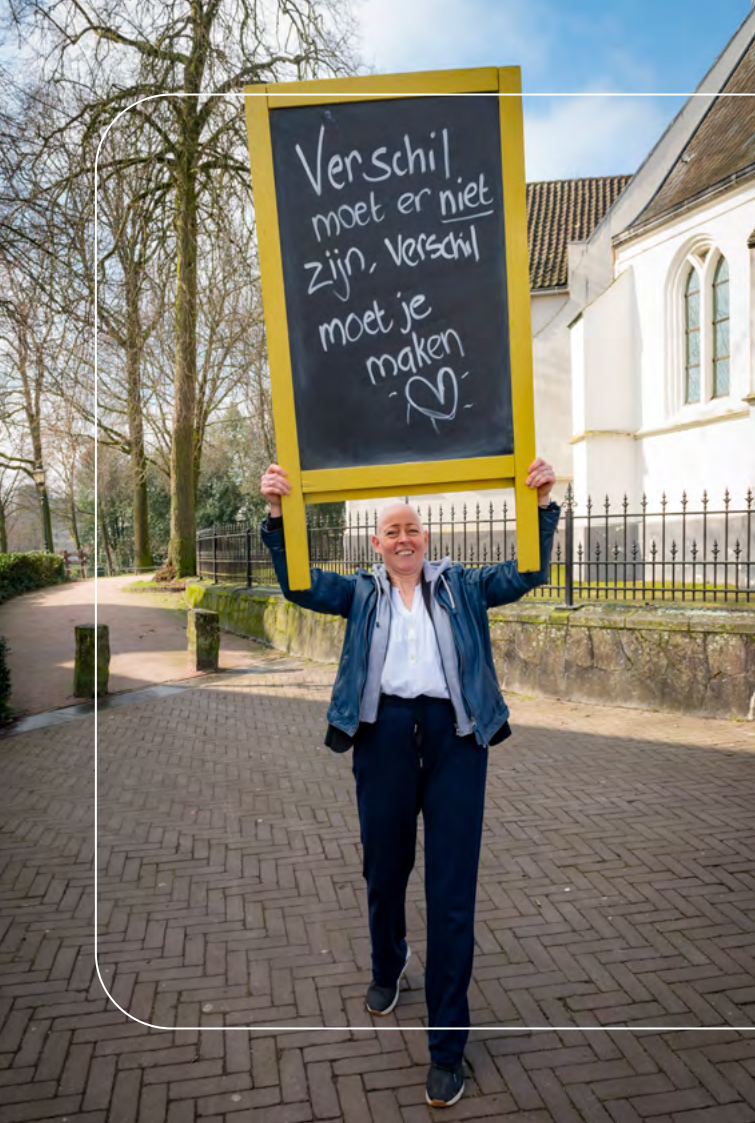 Verschil
moet er niet
zijn, verschil
moet je
maken